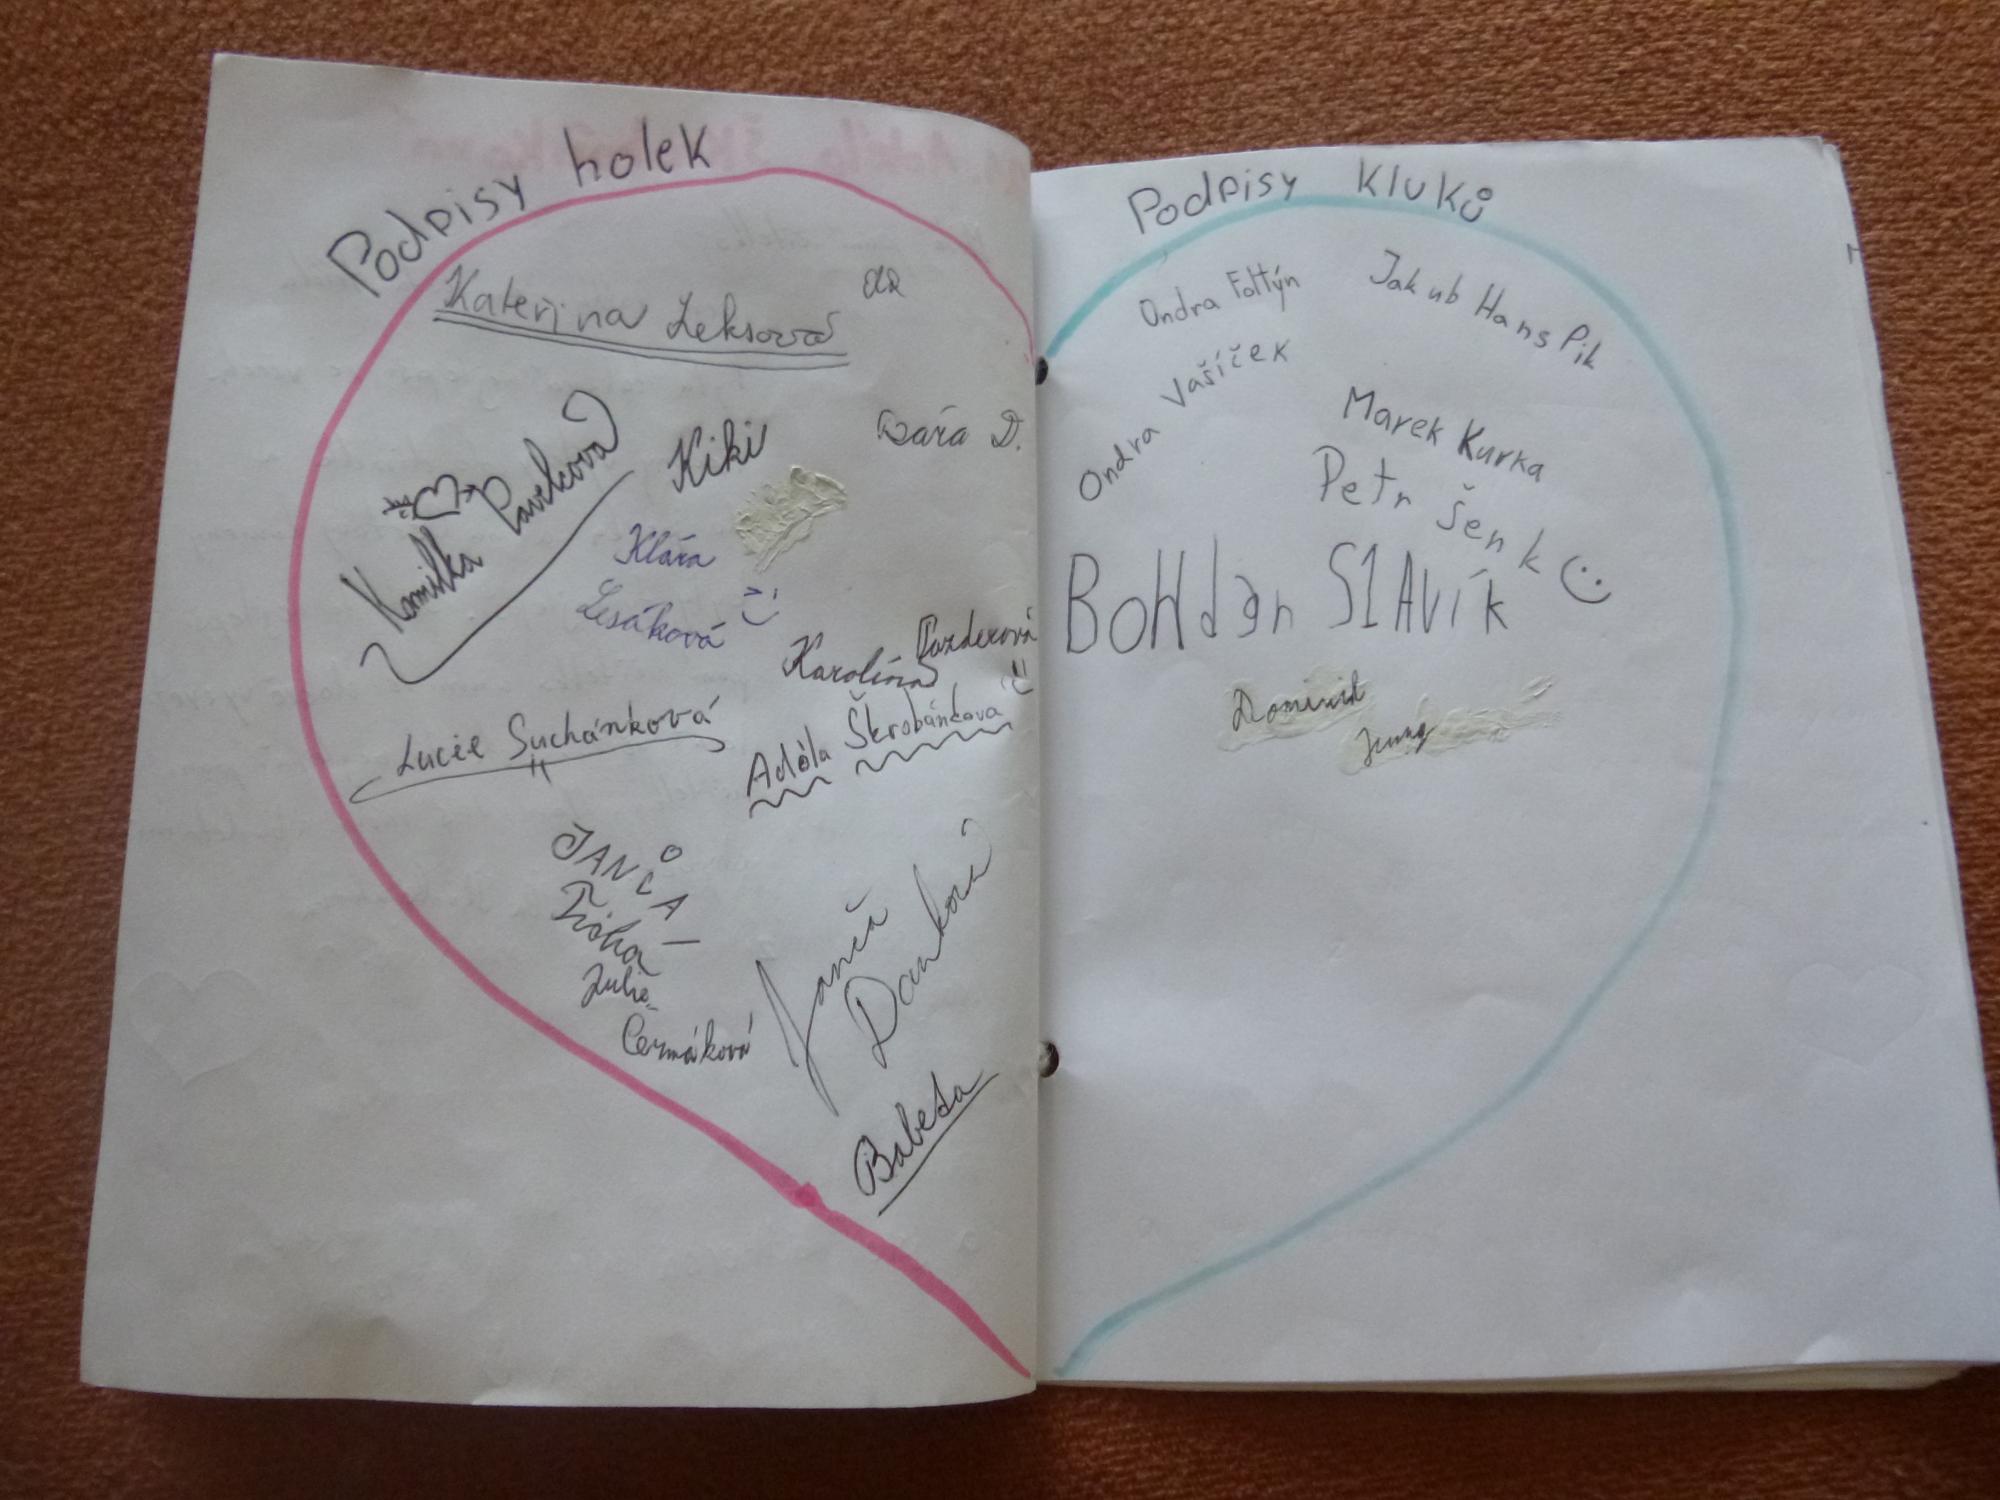 Podpisy holek
Kateřina Leksová
Kamilka Pavelcová
Kiki
Sára D.
Klára
Lesáková
Karolína Pazderová
Lucie Suchánková
Adéla Škrobánková
JANČA
Julie
Čermáková
Janča
Danková
Babeta
Podpisy kluků
Ondra Foltýn
Jakub Hans Pik
Ondra Vašíček
Marek Kurka
Petr Šenk
BoHdan SlAvík
Dominik
Jung